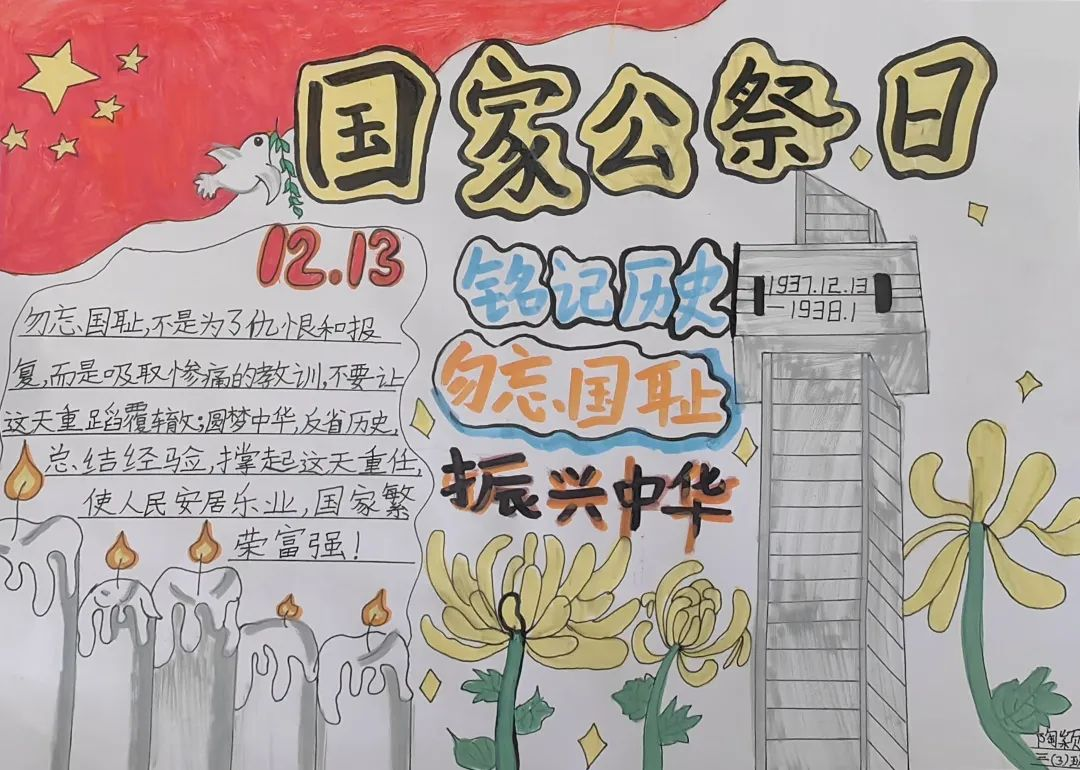 国家公祭日
12.13
勿忘国耻,不是为了仇恨和报
复,而是吸取惨痛的教训,不要让
这天重蹈覆辙;圆梦中华,反省历史,
总结经验,撑起这天重任,
使人民安居乐业,国家繁
荣富强!
铭记历史
勿忘国耻
振兴中华
1937.12.13
-1938.1
三(3)班